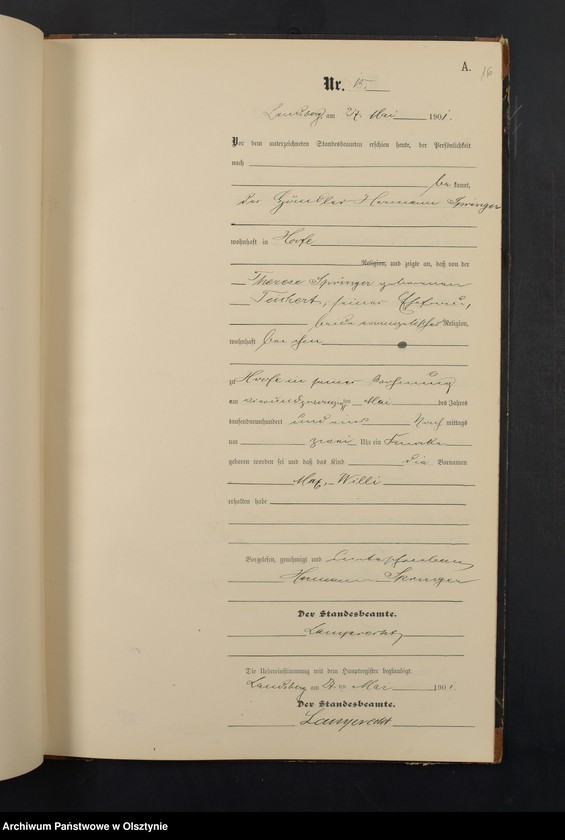 A.
16
Nr. 15.
Landsberg am 27. Mai 1901.
Vor dem unterzeichneten Standesbeamten erschien heute, der Persönlichkeit
nach
be kannt,
der Händler Hermann Springer
wohnhaft in Hoofe
Religion, und zeigte an, daß von der
Therese Springer geborenen
Teichert, seiner Ehefrau,
beide evangelischer Religion,
wohnhaft bei ihm
zu Hoofe in seiner Wohnung
am vierundzwanzigsten Mai des Jahres
tausendneunhundert und eins Nach mittags
um zwei Uhr ein Knabe
geboren worden sei und daß das Kind die Vornamen
Max, Willi
erhalten habe
Vorgelesen, genehmigt und unterschrieben
Hermann Springer
Der Standesbeamte.
Lamprecht
Die Uebereinstimmung mit dem Hauptregister beglaubigt.
Landsberg am 27. ten Mai 1901.
Der Standesbeamte.
Lamprecht
Archiwum Państwowe w Olsztynie